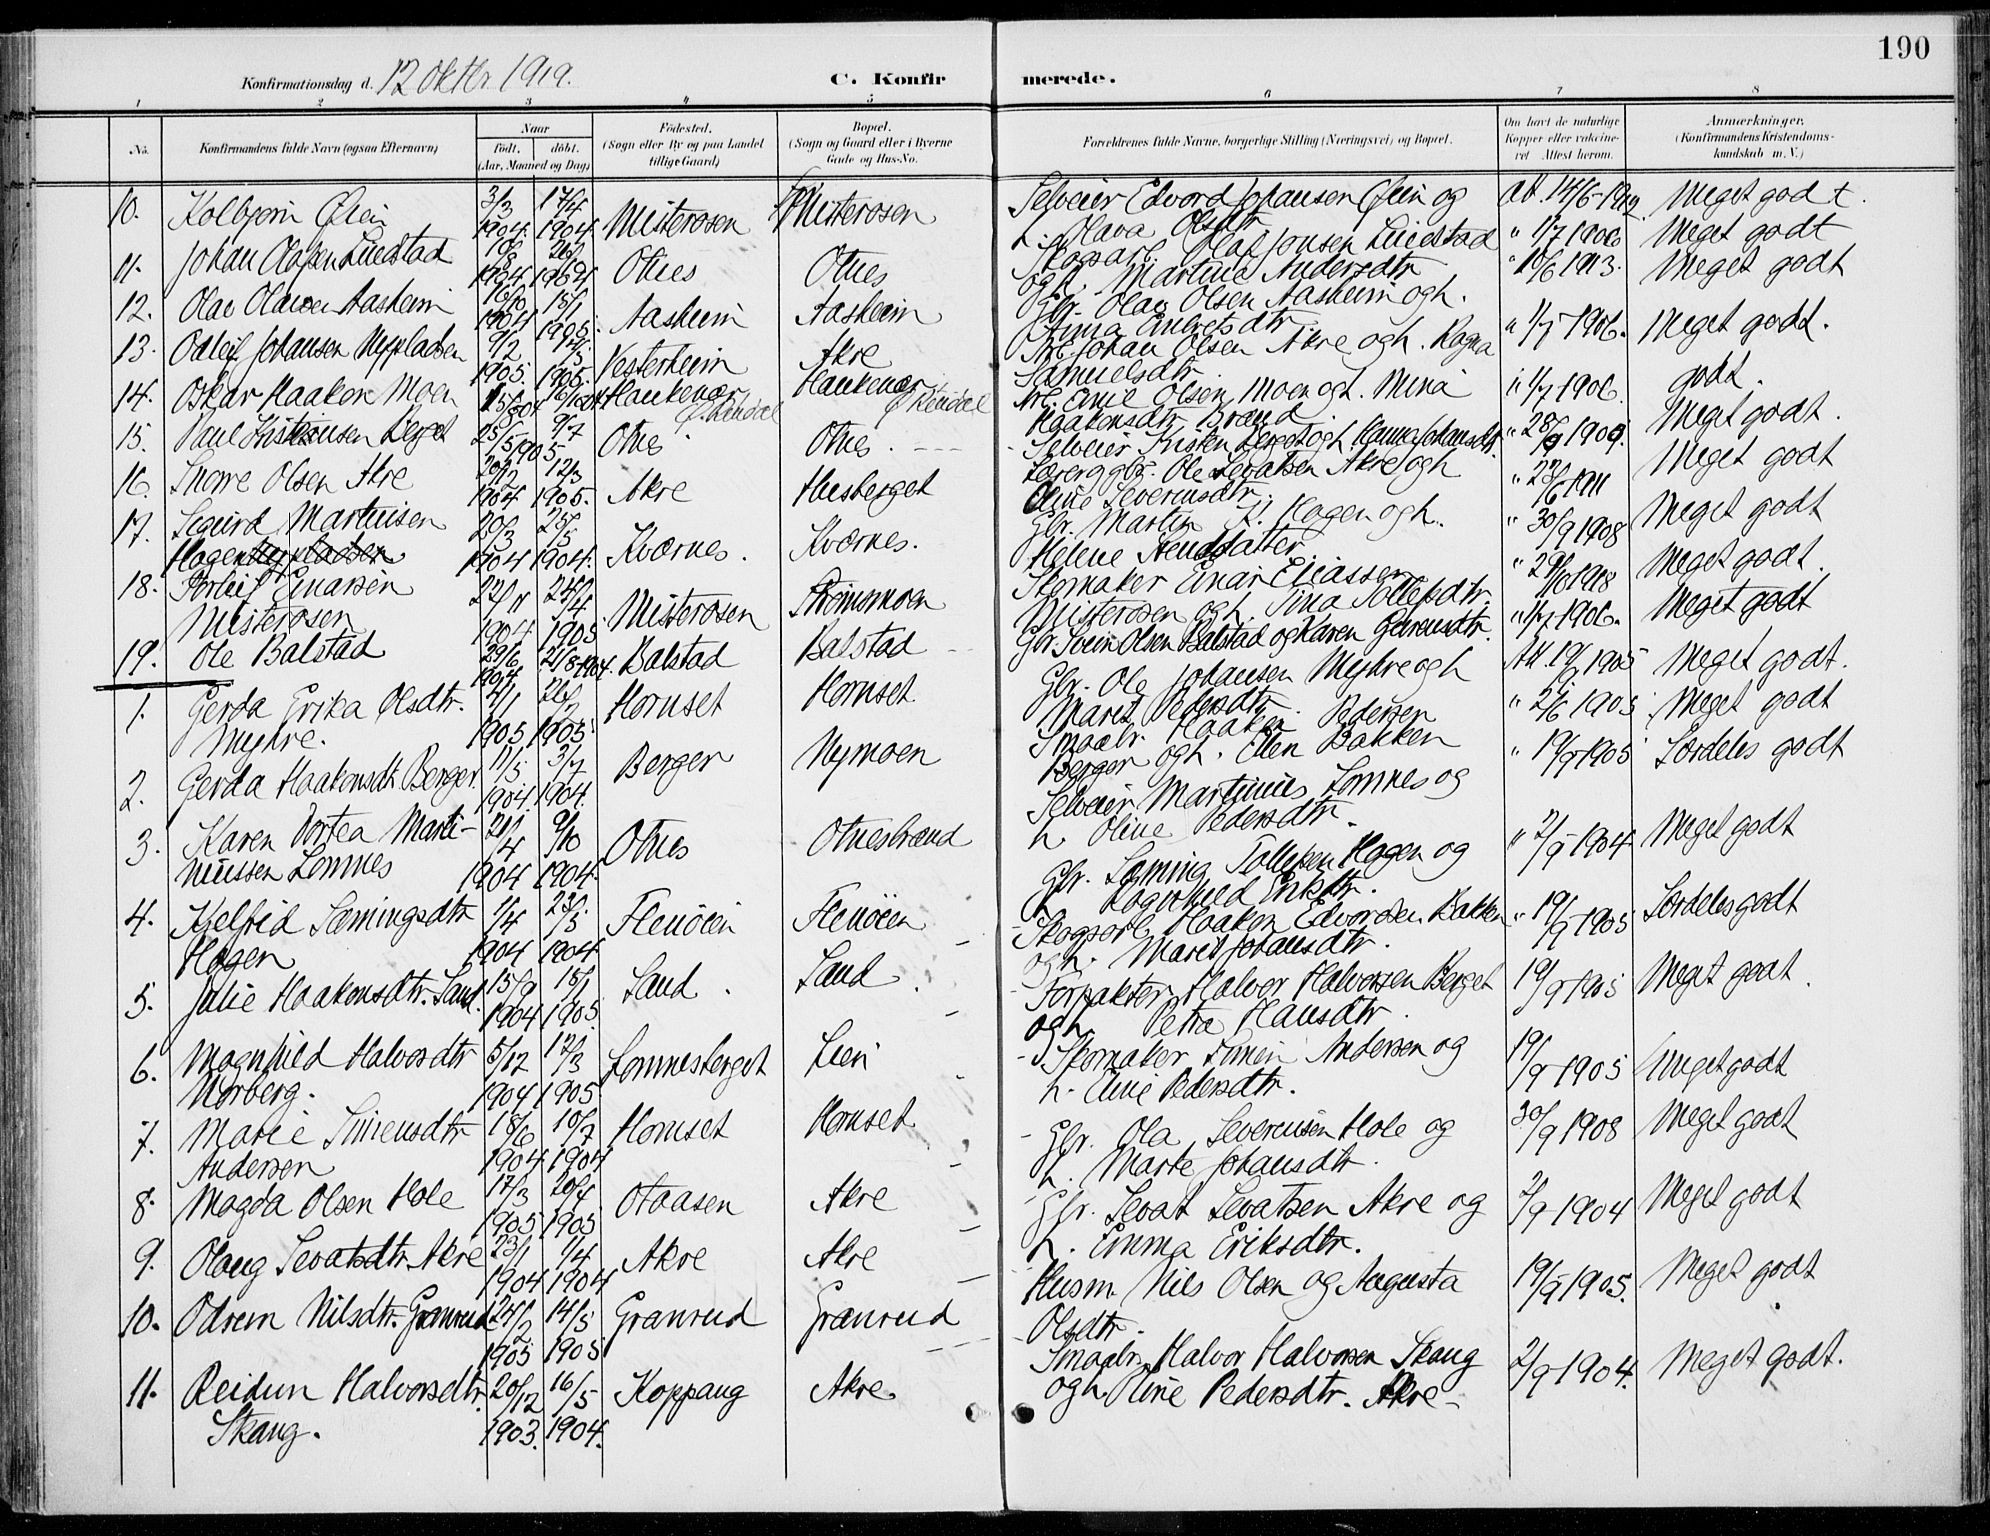 190
Konfirmationsdag d. 12 oktbr 1919.
C. Konfir merede.
1 2 3 4 5 6 7 8
No. Konfirmandens fulde Navn (ogsaa Efternavn) Naar født. døbt. (Aar, Maaned og Dag) Fødested. (Sogn eller By og paa Landet tillige Gaard) Bopæl. (Sogn og Gaard eller i Byerne Gade og Hus-No. Forældrenes fulde Navne, borgerlige Stilling (Næringsvei) og Bopæl. Om havt de naturlige Kopper eller vaccineret. Attest herom. Anmærkninger. (Konfirmandens Kristendomskundskab m. V.)
10. Kolbjørn Øien 3/3 1904. 17/4 1904. Misterosen Misterosen Selveier Edvard Johansen Øien og h. Olava Olsdtr Meget godt.
11. Johan Olafsen Liedstad 1904 1904 Otnes Otnes Skogsarb. Olaf Jonsen Liedstad og h. Martine Andersdtr " 1/7 1906 Meget godt
12. Olav Olavsen Aasheim 16/10 1904 15/1 1905. Aasheim Aasheim Gbr. Olav Olsen Aasheim og h. Anna Embretsdtr " 10/6 1913. Meget godt
13. Odleif Johansen Nypladsen 9/2 1905. 1905. Vesterheim Akre Arb. Johan Olsen Akre og h. Ragna Samuelsdtr " 1/7 1906. Meget godt.
14. Oskar Haakon Moen Haukenær Ø. Rendal Haukenær Ø Rendal Arb. Emil Olsen Moen og h. Mina Haakonsdtr Brænd " 1/7 1906. godt.
15. Paul Kristensen Berget 25/5 1905 9/7 Otnes Otnes. Selveier Kristen Berget og h. Hanna Johansdtr. " 28/9 1909. Meget godt.
16. Snorre Olsen Akre 20/12 1904 12/3 1905. Akre Husberget Lærer og gbr. Ole Sevatsen Akre og h Oline Severinsdtr. " 23/6 1911 Meget godt
17. Sigurd Martinsen Hagen 20/3 1904 25/5 1904. Kværnes. Kværnes. Gbr. Martin K. Hagen og h. Helene Stensdatter " 30/9 1908 Meget godt
18. Torleif Einarsen Misterosen 22/11 1904 24/4 1905 Misterosen Strømsmoen Skomaker Einar Eliassen Misterosen og h. Tina Tollefsdtr. " 29/10 1918 Meget godt.
19. Ole Balstad 29/6 1904 21/8 1904. Balstad Balstad Gbr Svein Olsen Balstad og Karen Gurensdtr. " 1/7 1906. Meget godt
1. Gerda Erika Olsdtr. Myhre. 4/1 1905 26/2 1905. Hornset Hornset Gbr. Ole Johansen Myhre og h Maret Pedersdtr. Att. 19/9 1905 Meget godt.
2. Gerda Haakonsdtr Berger. 11/5 1904. 3/7 1904. Berger Nymoen Smaabr. Haakon Pedersen Berger og h. Ellen Bakken " 2/6 1905 Meget godt
3. Karen Dortea Martiniussen Lomnes 21/4 1904 9/10 1904. Otnes Otnesbrænd Selveier Martinius Lomnes og h Oline Pedersdtr. " 19/9 1905 Særdeles godt
4. Kjelfrid Sæmingsdtr Hagen 1/4 1904 23/5 1904 Flenøien Flenøien Gbr. Sæming Tollefsen Hagen og h Ragnhild Eriksdtr. " 2/9 1904 Meget godt
5. Julie Haakonsdtr. Sand. 15/9 1904 15/1 1905. Sand. Sand. Skogsarb. Haakon Edvardsen Bakken og h. Maret Johansdtr. " 19/9 1905 Særdeles godt
6. Magnhild Halvorsdtr Norberg. 5/12 1904 17/3 1905. Lomnesberget Lien Forpakter Halvor Halvorsen Berget og h Petra Hansdtr. 19/9 1905 Meget godt.
7. Marie Simensdtr Andersen 18/6 1904 10/7 1904 Hornset Hornset Skomaker Simen Andersen og h. Eline Pedersdtr. 19/9 1905 Meget godt
8. Magda Olsen Hole 17/3 1905 20/4 1905 Otaasen Akre Gbr. Ola Severinsen Hole og h. Marte Johansdtr. 30/9 1908 Meget godt
9. Olaug Sevatsdtr. Akre 23/1 1904 1/4 1904 Akre Akre Gbr. Sevat Sevatsen Akre og h. Emma Eriksdtr. 2/9 1904 Meget godt
10. Nilsdtr. Granrud 24/2 1905 14/5 1905 Granrud Granrud Husm. Nils Olsen og Augusta Olsdtr. 19/9 1905. Meget godt
11. Reidun Halvorsdtr. Skaug. 20/12 1903. 16/5 1904. Koppang Akre. Smaabr. Halvor Halvorsen Skaug og h Oline Pedersdtr. Akre - 2/9 1904. Meget godt.